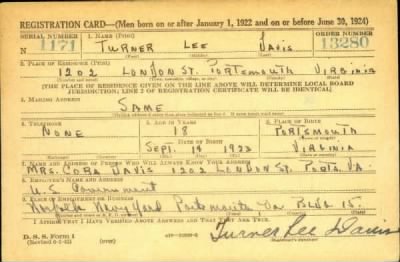 REGISTRATION CARD—(Men born on or after January 1, 1922 and on or before June 30, 1924)
SERIAL NUMBER 1. NAME (Print) ORDER NUMBER
N 1171 TURNER LEE DAVIS 13280
2. PLACE OF RESIDENCE (Print)
1202 LONDON ST. PORTSMOUTH VIRGINIA
[THE PLACE OF RESIDENCE GIVEN ON THE LINE ABOVE WILL DETERMINE LOCAL BOARD
JURISDICTION; LINE 2 OF REGISTRATION CERTIFICATE WILL BE IDENTICAL]
3. MAILING ADDRESS
SAME
4. TELEPHONE 5. AGE IN YEARS 6. PLACE OF BIRTH
NONE 18 PORTSMOUTH
DATE OF BIRTH
SEPT. 19 1923 VIRGINIA
7. NAME AND ADDRESS OF PERSON WHO WILL ALWAYS KNOW YOUR ADDRESS
MRS. CORA DAVIS 1202 LONDON ST. PORTS. VA.
8. EMPLOYER'S NAME AND ADDRESS
U.S. Government
9. PLACE OF EMPLOYMENT OR BUSINESS
Norfolk Navy Yard Portsmouth Va BLDG 15.
I AFFIRM THAT I HAVE VERIFIED ABOVE ANSWERS AND THAT THEY ARE TRUE.
D. S. S. Form 1
Turner Lee Davis